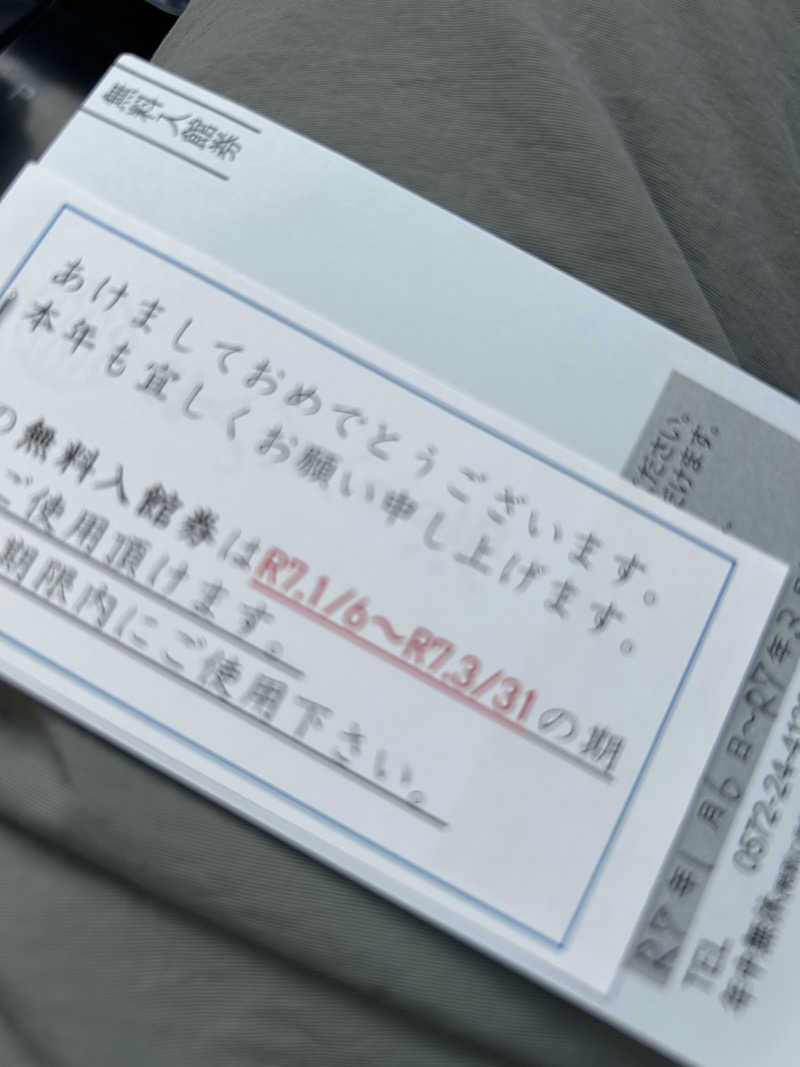 無料入館券
あけましておめでとうございます。
本年も宜しくお願い申し上げます。
の無料入館券はR7.1/6～R7.3/31の期
ご使用頂けます。
期限内にご使用下さい。
ださい。
だけます。
R7年1月6日～R7年3月
TEL 0572-24-41
年中無休